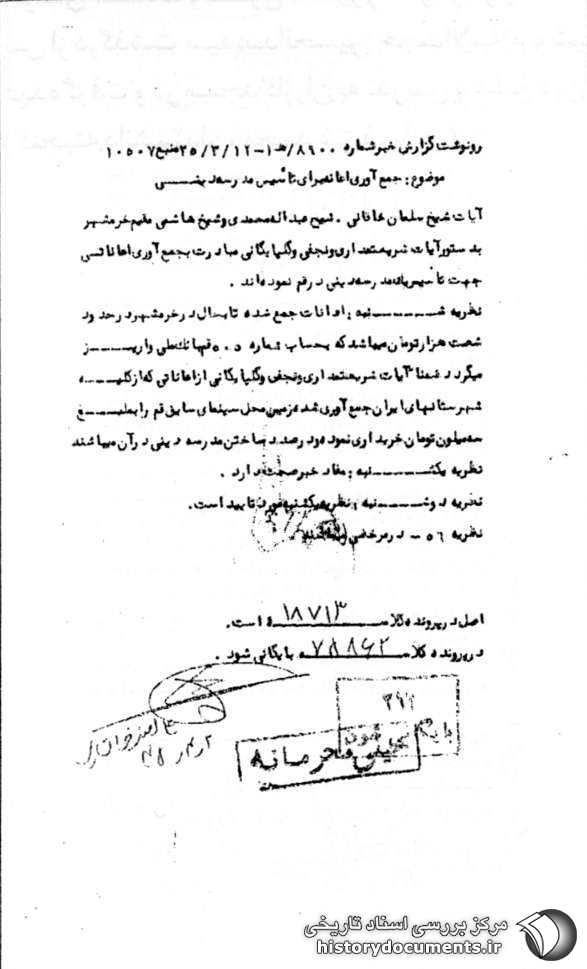 رونوشت گزارش خبر شماره ۸۹۰۰/هـ ۱-۳۵/۳/۱۲ منبع ۱۰۵۰۷
موضوع : جمع آوری اعانه برای تأسیس مدرسه دینـــــی
آیات شیخ سلمان خاقانی . شیخ عبداله محمدی و شیخ هاشمی مقیم خرمشهر
بدستور آیات شریعتمداری و نجفی و گلپایگانی مبادرت بجمع آوری اعاناتی
جهت تأسیس یکمدرسه دینی در قم نموده اند .
نظریه شـــــــنبه : اعانات جمع شده تا بحال در خرمشهر در حدود
شصت هزار تومان میباشد که بحساب شماره ۵۰۰ قم بانک ملی واریـــــز
میگردد ضمناً آیات شریعتمداری و نجفی و گلپایگانی از اعاناتی که از کلیـــــه
شهرستانهای ایران جمع آوری شده زمین محل سینمای سابق قم را بمبلـــــغ
سه میلیون تومان خریداری نموده و در صدد ساختن مدرسه دینی در آن میباشند
نظریه یکشـــــــنبه : مفاد خبر صحت دارد .
نظریه دوشـــــــنبه : نظریه یکشنبه مورد تایید است .
نظریه ۵۶ - در مرخصی میباشند .
اصل در پرونده کلاسه ۱۸۷۱۳ است .
در پرونده کلاسه ۷۸۸۶۲ بایگانی شود .
۳۹۲
بایگانی شود
خیلی محرمانه
مرکز بررسی اسناد تاریخی
historydocuments.ir